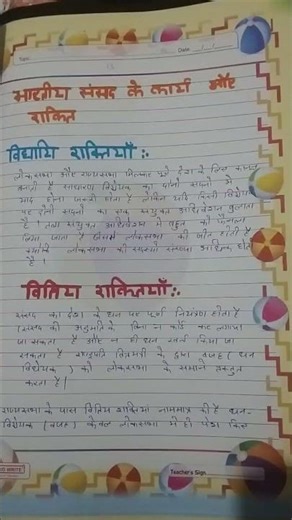 Date
भारतीय संसद के कार्य और
शक्ति
विधायि शक्तियाँ :-
लोकसभा और राज्यसभा मिलकर ही देश के लिए कानून
बनाती है साधारण विधेयक का दोनों सदनों में
पास होना जरूरी होता है लेकिन यदि किसी विधेयक
पर दोनों सदनों का एक संयुक्त अधिवेशन बुलाया
है। तथा संयुक्त अधिवेशन में बहुत को फैसला
लिया जाता है जिसमें लोकसभा की जीत होती है
क्योंकि लोकसभा की सदस्यों संख्या अधिक होती
है।
वित्तिय शक्तियाँ :-
संसद का देश के धन पर पूर्ण नियंत्रण होता है
संसद की अनुमति के बिना न कोई कर लगाया
जा सकता है और न ही धन खर्च किया जा
सकता है राष्ट्रपति वित्तमंत्री के द्वारा बजट (धन
विधेयक) को लोकसभा के समान प्रस्तुत
करता है।
राज्यसभा के पास वित्तिय शक्तियां नाममात्र की है धन-
विधेयक (बजट) केवल लोकसभा में ही पेश किए
Teacher's Sign